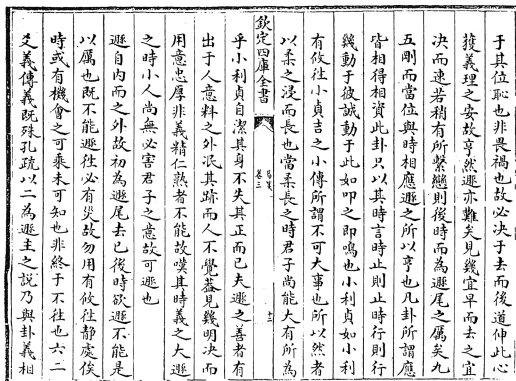 于其位恥也非畏禍也故必决于去而後道伸此心
獲義理之安故亨然遯亦難矣見幾宜早而去之宜
决而速若稍有所繫戀則後時而為遯尾之厲矣九
五剛而當位與時相應遯之所以亨也凡卦所謂應
皆相得相資此卦只以其時言時止則止時行則行
幾動于彼誠動于此如叩之即鳴也小利貞如小利
有攸往小貞吉之小傳所謂不可大事也所以然者
以柔之浸而長也當柔長之時君子尚能大有所為
欽定四庫全書
卷三
乎小利貞自潔其身不失其正而已夫遯之善者有
出于人意料之外泯其跡而人不覺葢見幾明决而
用意忠厚非義精仁熟者不能故嘆其時義之大遯
之時小人尚無必害君子之意故可遯也
遯自内而之外故初為遯尾去已後時欲遯不能是
以厲也既不能遯往必有災故勿用有攸往静處俟
時或有機會之可乘未可知也非終于不往也六二
爻義傳義既殊孔疏以二為遯主之說乃與卦義相